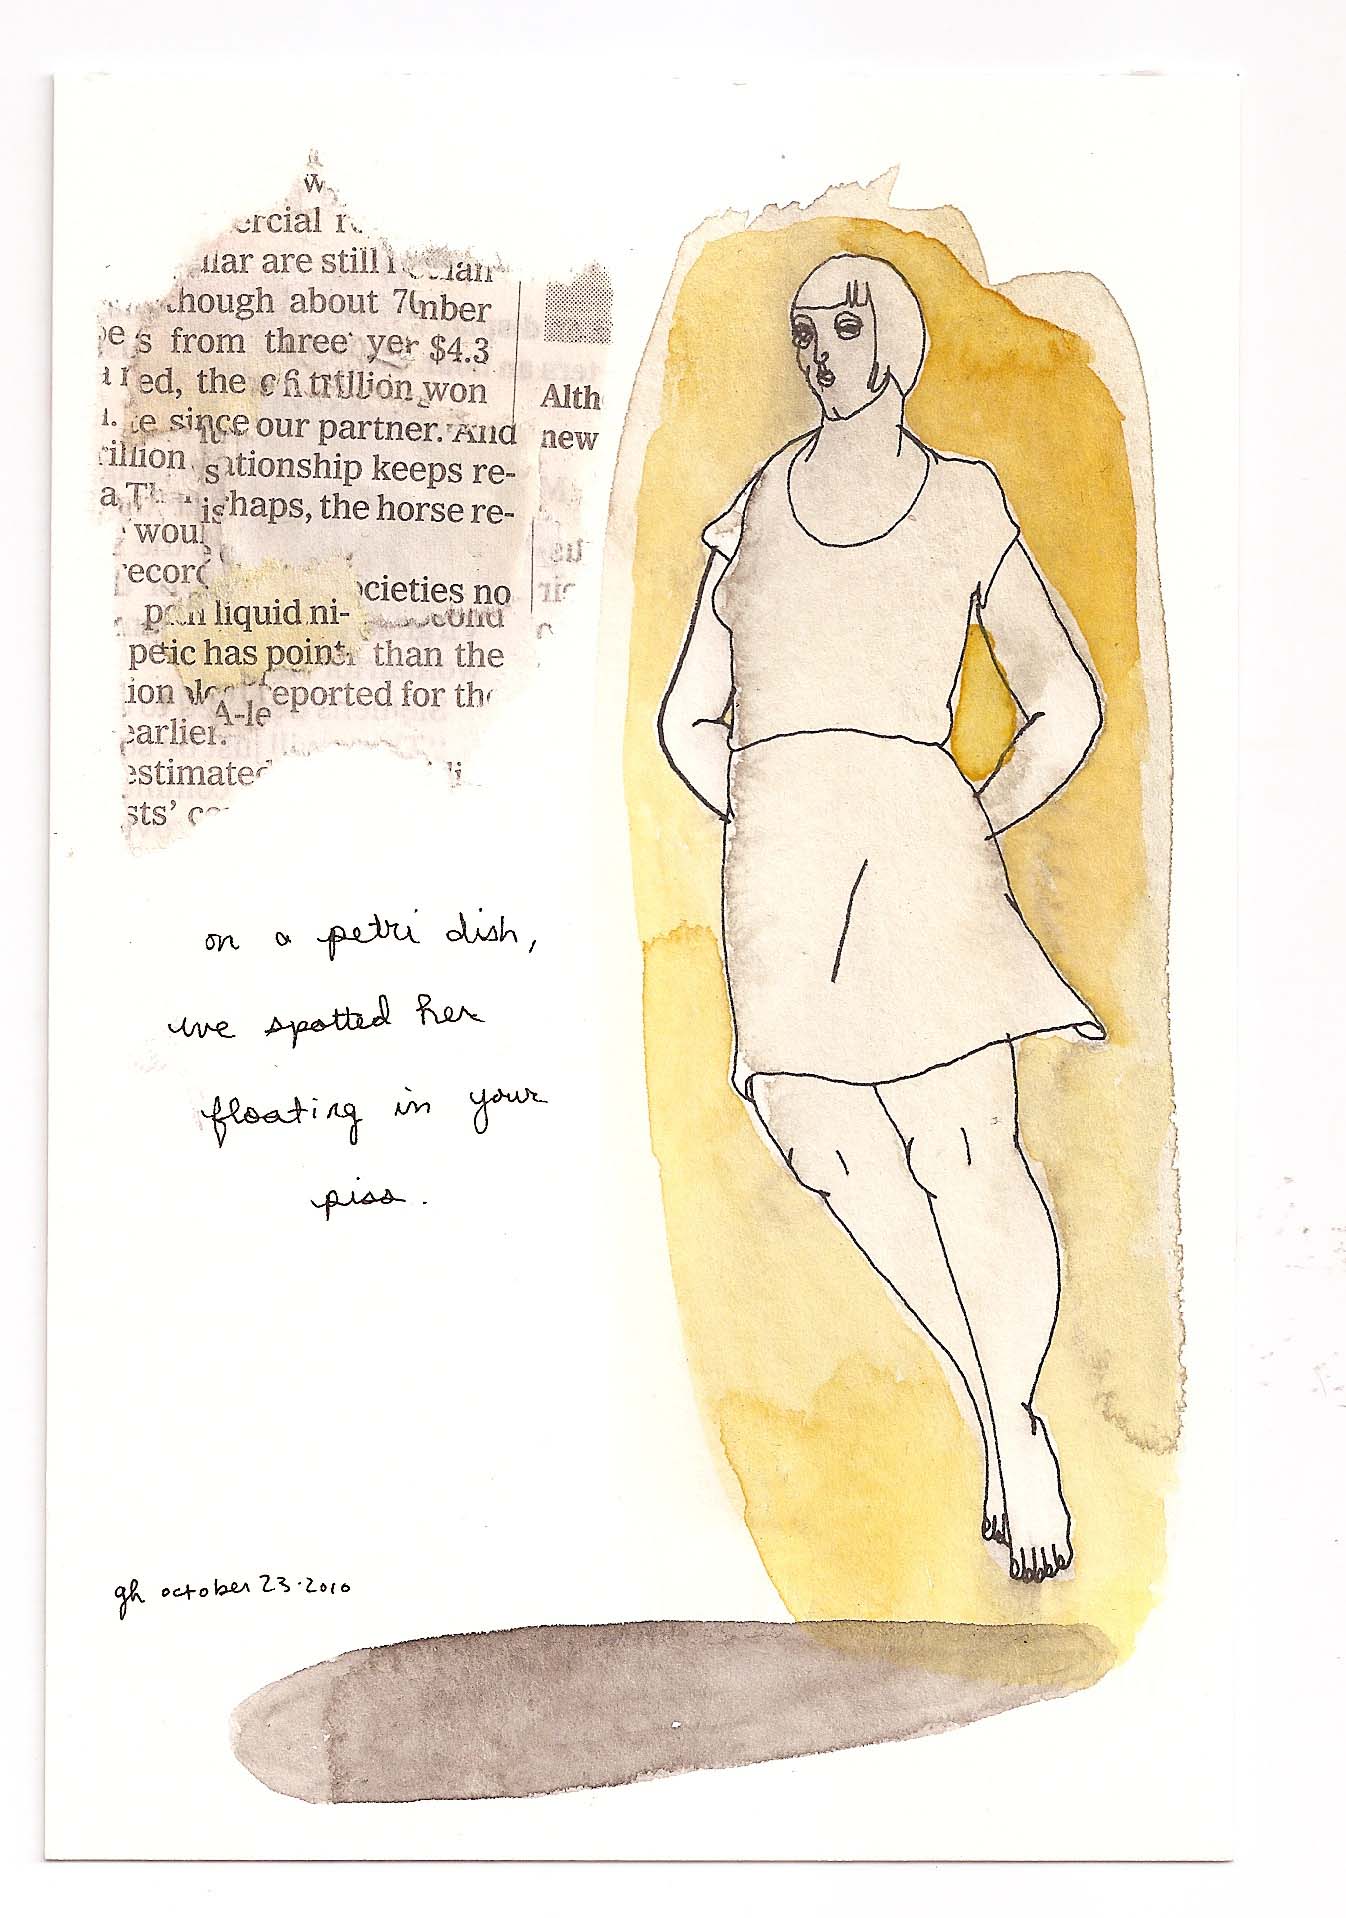 ercial
are still
though about
from three
$4.3
ed, the
trillion won
since our partner. And
rillion
ationship keeps re-
haps, the horse re-
woul
recor
cieties no
liquid ni-
has point than the
ion
eported for the
A-le
earlier.
estimated
sts'
Alth
new
on a petri dish,
we spotted her
floating in your
piss.
gh october 23·2010